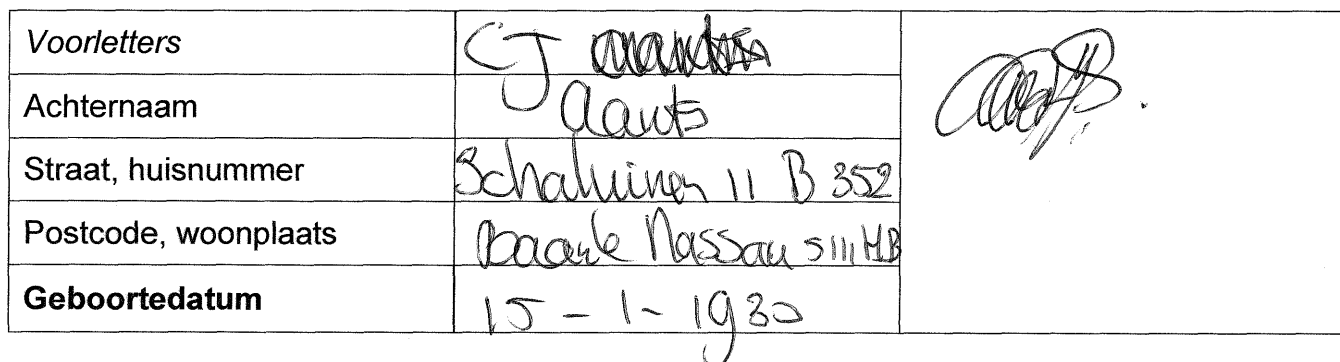 Voorletters CJ
Achternaam Aarts
Straat, huisnummer Schaluinen 11 B 352
Postcode, woonplaats Baarle Nassau 5111HB
Geboortedatum 15-1-1930